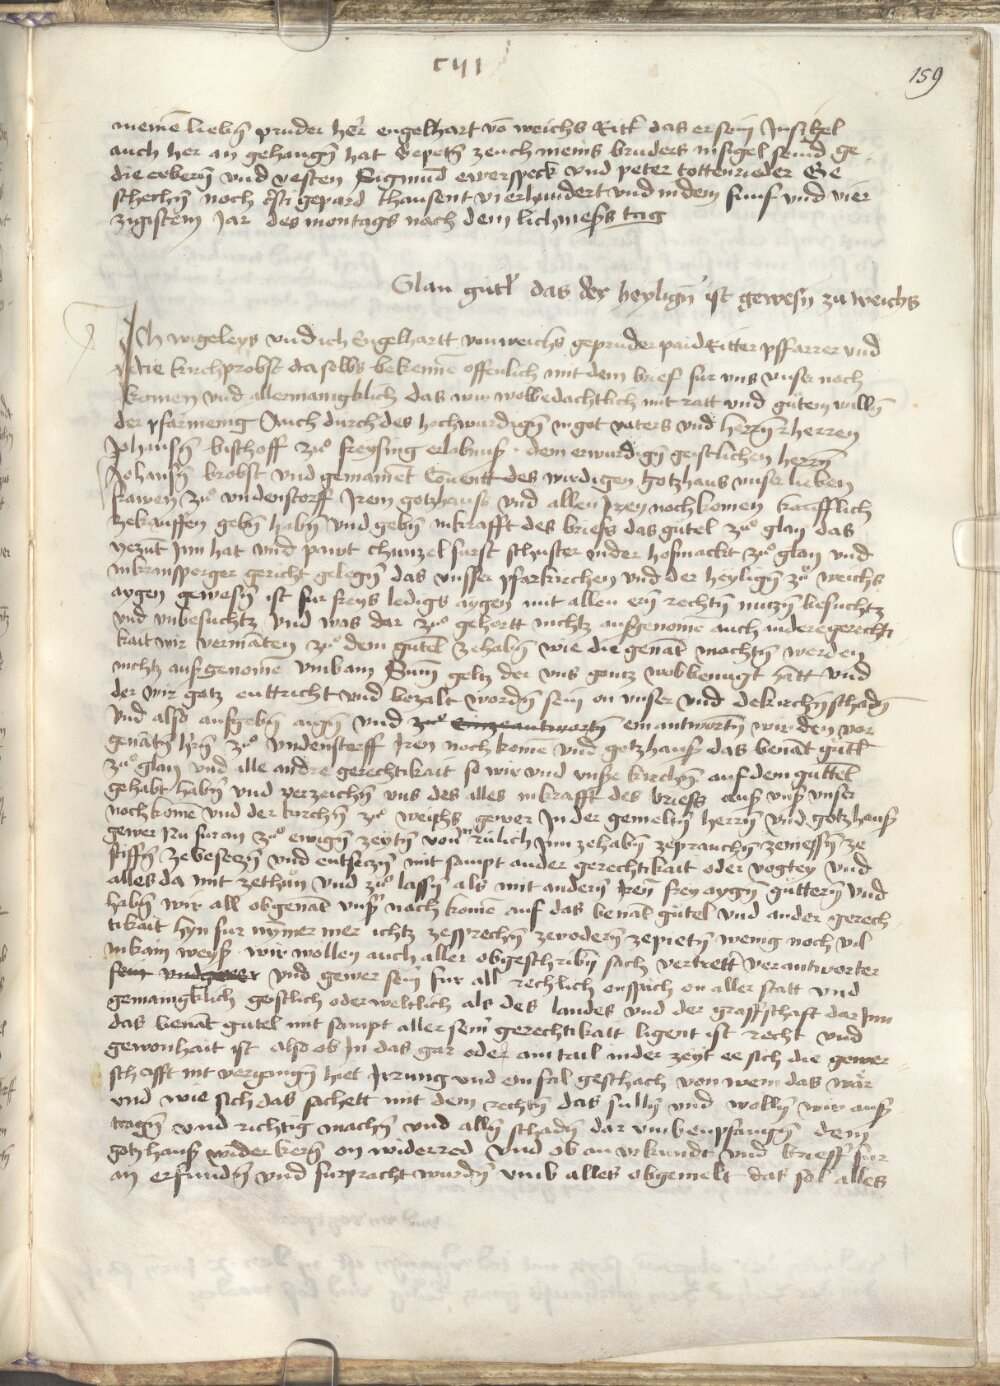 CVII
159
meinē liebn̄ pruder her engelhart vō weichs Ritt' das er sein Jnsigel
auch her an gehangn̄ hat Gepetn̄ zeuch meins bruders insigel seind ge
die erbern̄ vnd vesten Sigmūd ewerspeck vnd peter tottenrieder Ge
schechn̄ noch cristi gepurd thausent vierhundert vnd in dem funf vnd vier
zigistem Jar des montags nach dem lichmess tag
Glan gutl das der heylign̄ ist gewesn̄ zu weichs
Ich wigeleys vnd ich Engelhartt von weichs gepruder paid Ritter pffarrer vnd
die kirchprobst da selbs bekennē offenlich mit dem brief fur vns vnser noch
komen vnd allermanigklich das wir wolbedachtlich mit ratt vnd gutem willn̄
der pfarmenig Auch durch des hochwirdign̄ in got vaters vnd herrn̄ herren
Johansn̄ bisthoff zuo freysing erlabnuss dem erwirdign̄ geistlichen herrn̄
Johansn̄ brobst vnd gemainēt Couentt des wirdigen gotzhaus vnser lieben
frawen zuo vndenstorff Jrem gotzhauss vnd allen Jren nochkomen kaufflich
zekauffen gebn̄ habn̄ vnd gebn̄ in krafft des briefs das gutel zuo glan das
yezūt Jnn hat vnd pawt chunzel furst schuster vnder hofmarckt zuo glan vnd
in kransperger gericht gelegn̄ das vnsser pfarkirchen vnd der heylign̄ zuo weichs
aygen gewesn̄ ist fur freys ledigs aygen mit allen ern̄ rechtn̄ nutzn̄ besuchtz
vnd vnbesuchtz vnd was dar zuo gehortt nichtz ausgenomē auch andere gerechti
kait wir vermainten zuo dem gutel zehabn̄ wie die genāt mochtn̄ werden
nichtz ausgenomē vmb ain Sum̄ geltz der vns gantz wol benugt hātt vnd
der wir gantz enttricht vnd bezalt wordn̄ sein on vnser vnd de kirchn̄ schadn̄
vnd also aufgebn̄ aign̄ vnd ein antwortn̄ wir den vor
genātn̄ hrn̄ zuo vndenstorff Jren nochkomē vnd gotzhauss das benāt gutl
zuo glan vnd alle andre gerechtikait so wir vnd vnsre kirchn̄ auf dem guttel
gehabt habn̄ vnd verzeichn̄ vns des alles in krafft des briefs auss vnss vnser
nochkomē vnd der kirchn̄ zuo weichs gewer Jn der gemeltn̄ herrn̄ vnd gotzhauss
gewer Nu furan zuo ewign̄ zeytn̄ vnd rulich Jnn zehabn̄ zeprauchn̄ zeniessn̄ ze
stifftn̄ ze besetzn̄ vnd entsetzn̄ mit sampt ander gerechtikait oder vogtey vnd
alles da mit zethun vnd zuo lassn̄ als mit andern̄ Jren frey aygn̄ guttern̄ vnd
habn̄ wir all obgenāt vnsr nach komē auf das benāt gutel vnd ander gerech
tikait hyn fur nymer mer ichtz zesprechn̄ zevodern̄ zepietn̄ wenig noch vil
in kain weyss wir wollen auch aller obgeschribn̄ sach vertrett verantworter
vnd gewer sein fur all rechlich ensprüch on aller statt vnd
gemainigklich geistlich oder weltlich als des landes vnd der graffschaft dar Jnn
das benāt gutel mit sampt aller seinr gerechtikatt ligent ist recht vnd
gewonhait ist also ob Jn das gar oder am tail in der zeyt ee sich die gewer
schafft nit vergangn̄ hiet Jrrung vnd ein fal geschach von wem das wär
vnd wie sich das sachett mit dem rechtn̄ das sulln̄ vnd wolln̄ wir auss
tragn̄ vnd richtig machn̄ vnd alln̄ schadn̄ dar vmb enpfangn̄ dem
gotzhauss wider kern̄ on widerred vnd ob an vrkundt vnd brieff fur
an erfundn̄ vnd furpracht wurdn̄ vmb alles obgemelt das sol alles